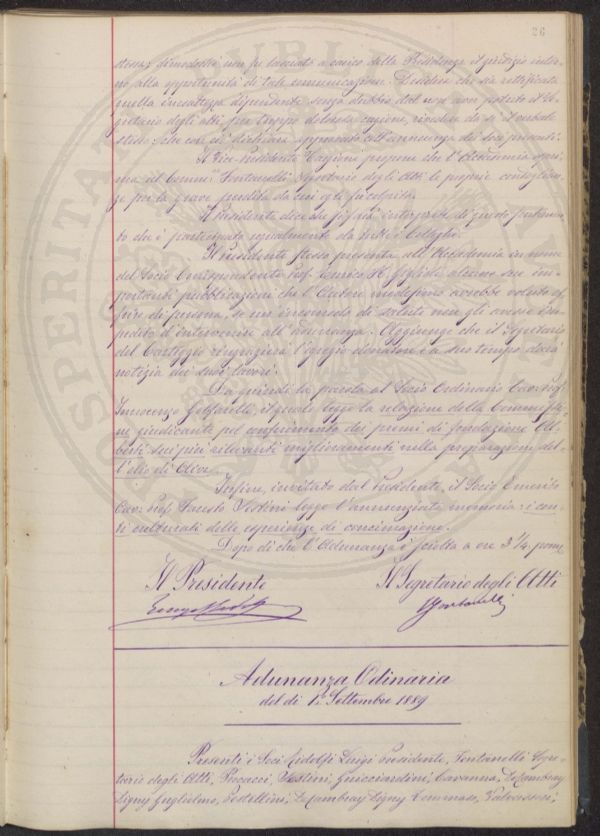 26
stessi; dimodoché non fu lasciato a carico della Presidenza il giudizio intor-
no alla opportunità di tale comunicazione. Desidera che sia rettificata
quella inesattezza dipendente senza dubbio dal non aver potuto il Se-
gretario degli atti, per troppo dolorose cagioni, rivedere da sé il verbale
stesso, che così si dichiara approvato all'unanimità dai Soci presenti.
Il Vice-Presidente propone che l'Accademia espri-
ma al Comm. Fontanelli Segretario degli Atti le proprie condoglian-
ze per la grave perdita da cui egli fu colpito.
Il Presidente dice che si farà interprete di questo sentimen-
to che è partecipato egualmente da tutti i Colleghi.
Il Presidente stesso presenta all'Accademia in nome
del Socio Corrispondente Prof. Enrico H. Giglioli alcune sue im-
portanti pubblicazioni che l'Autore medesimo avrebbe voluto of-
frire di persona, se un incomodo di salute non gli avesse im-
pedito d'intervenire all'adunanza. Aggiunge che il Segretario
del Carteggio ringrazierà l'egregio donatore e a suo tempo darà
notizia dei suoi lavori.
Dà quindi la parola al Socio Ordinario Cav. Prof.
Innocenzo Golfarelli, il quale legge la relazione della Commissio-
ne giudicante pel conferimento dei premi di fondazione Al-
berti sui più rilevanti miglioramenti nella preparazione del-
l'olio di Oliva.
Infine, invitato dal Presidente, il Socio Emerito
Cav. Prof. Fausto Sestini legge l'annunziata memoria: i con-
ti culturali delle esperienze di concimazione.
Dopo di che l'Adunanza è sciolta a ore 3 1/4 pom.
Il Presidente Il Segretario degli Atti
Fontanelli
Adunanza Odinaria
del dì 1° Settembre 1889
Presenti i Soci Ridolfi Luigi Presidente, Fontanelli Segre-
tario degli Atti, Procacci, Sestini, Guicciardini, Cavanna, De Cambray
Digny Guglielmo, Pestellini, De Cambray Digny Tommaso, Valvassori,